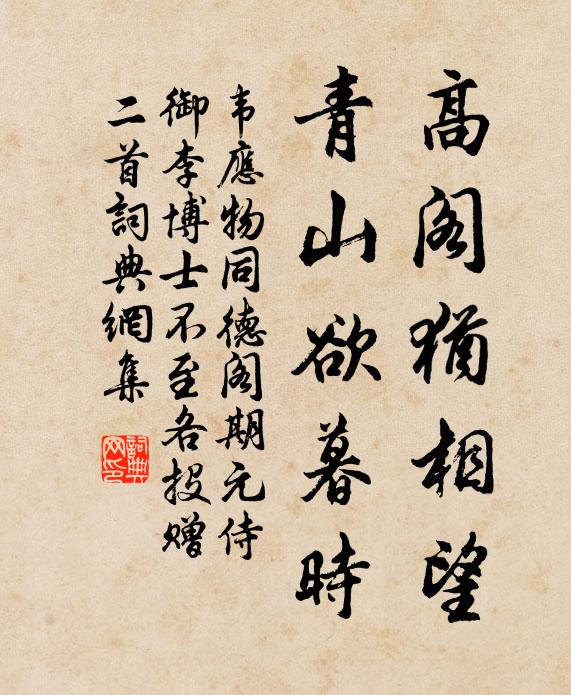 高阁猶相望
青山欲暮時
韦應物同德阁期元侍
御李博士不至各投赠
二首詞典網集
詞典
网印